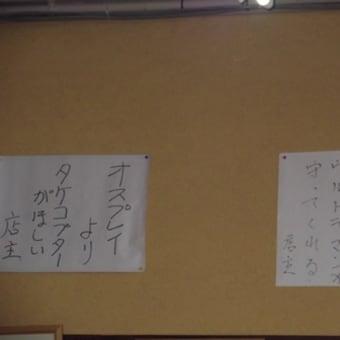 守ってくれる。
店主
オスプレイ
より
タケコプター
がほしい
店主